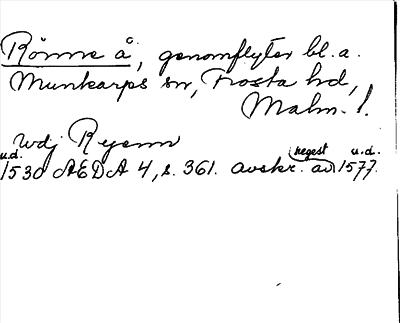 Rönne å, genomflyter bl.a.
Munkarps sn, Frosta hd,
Malm. l.
wdj Ryenn
u.d. regest u.d.
1530 AEDA 4, s. 361. avskr. av 1577.